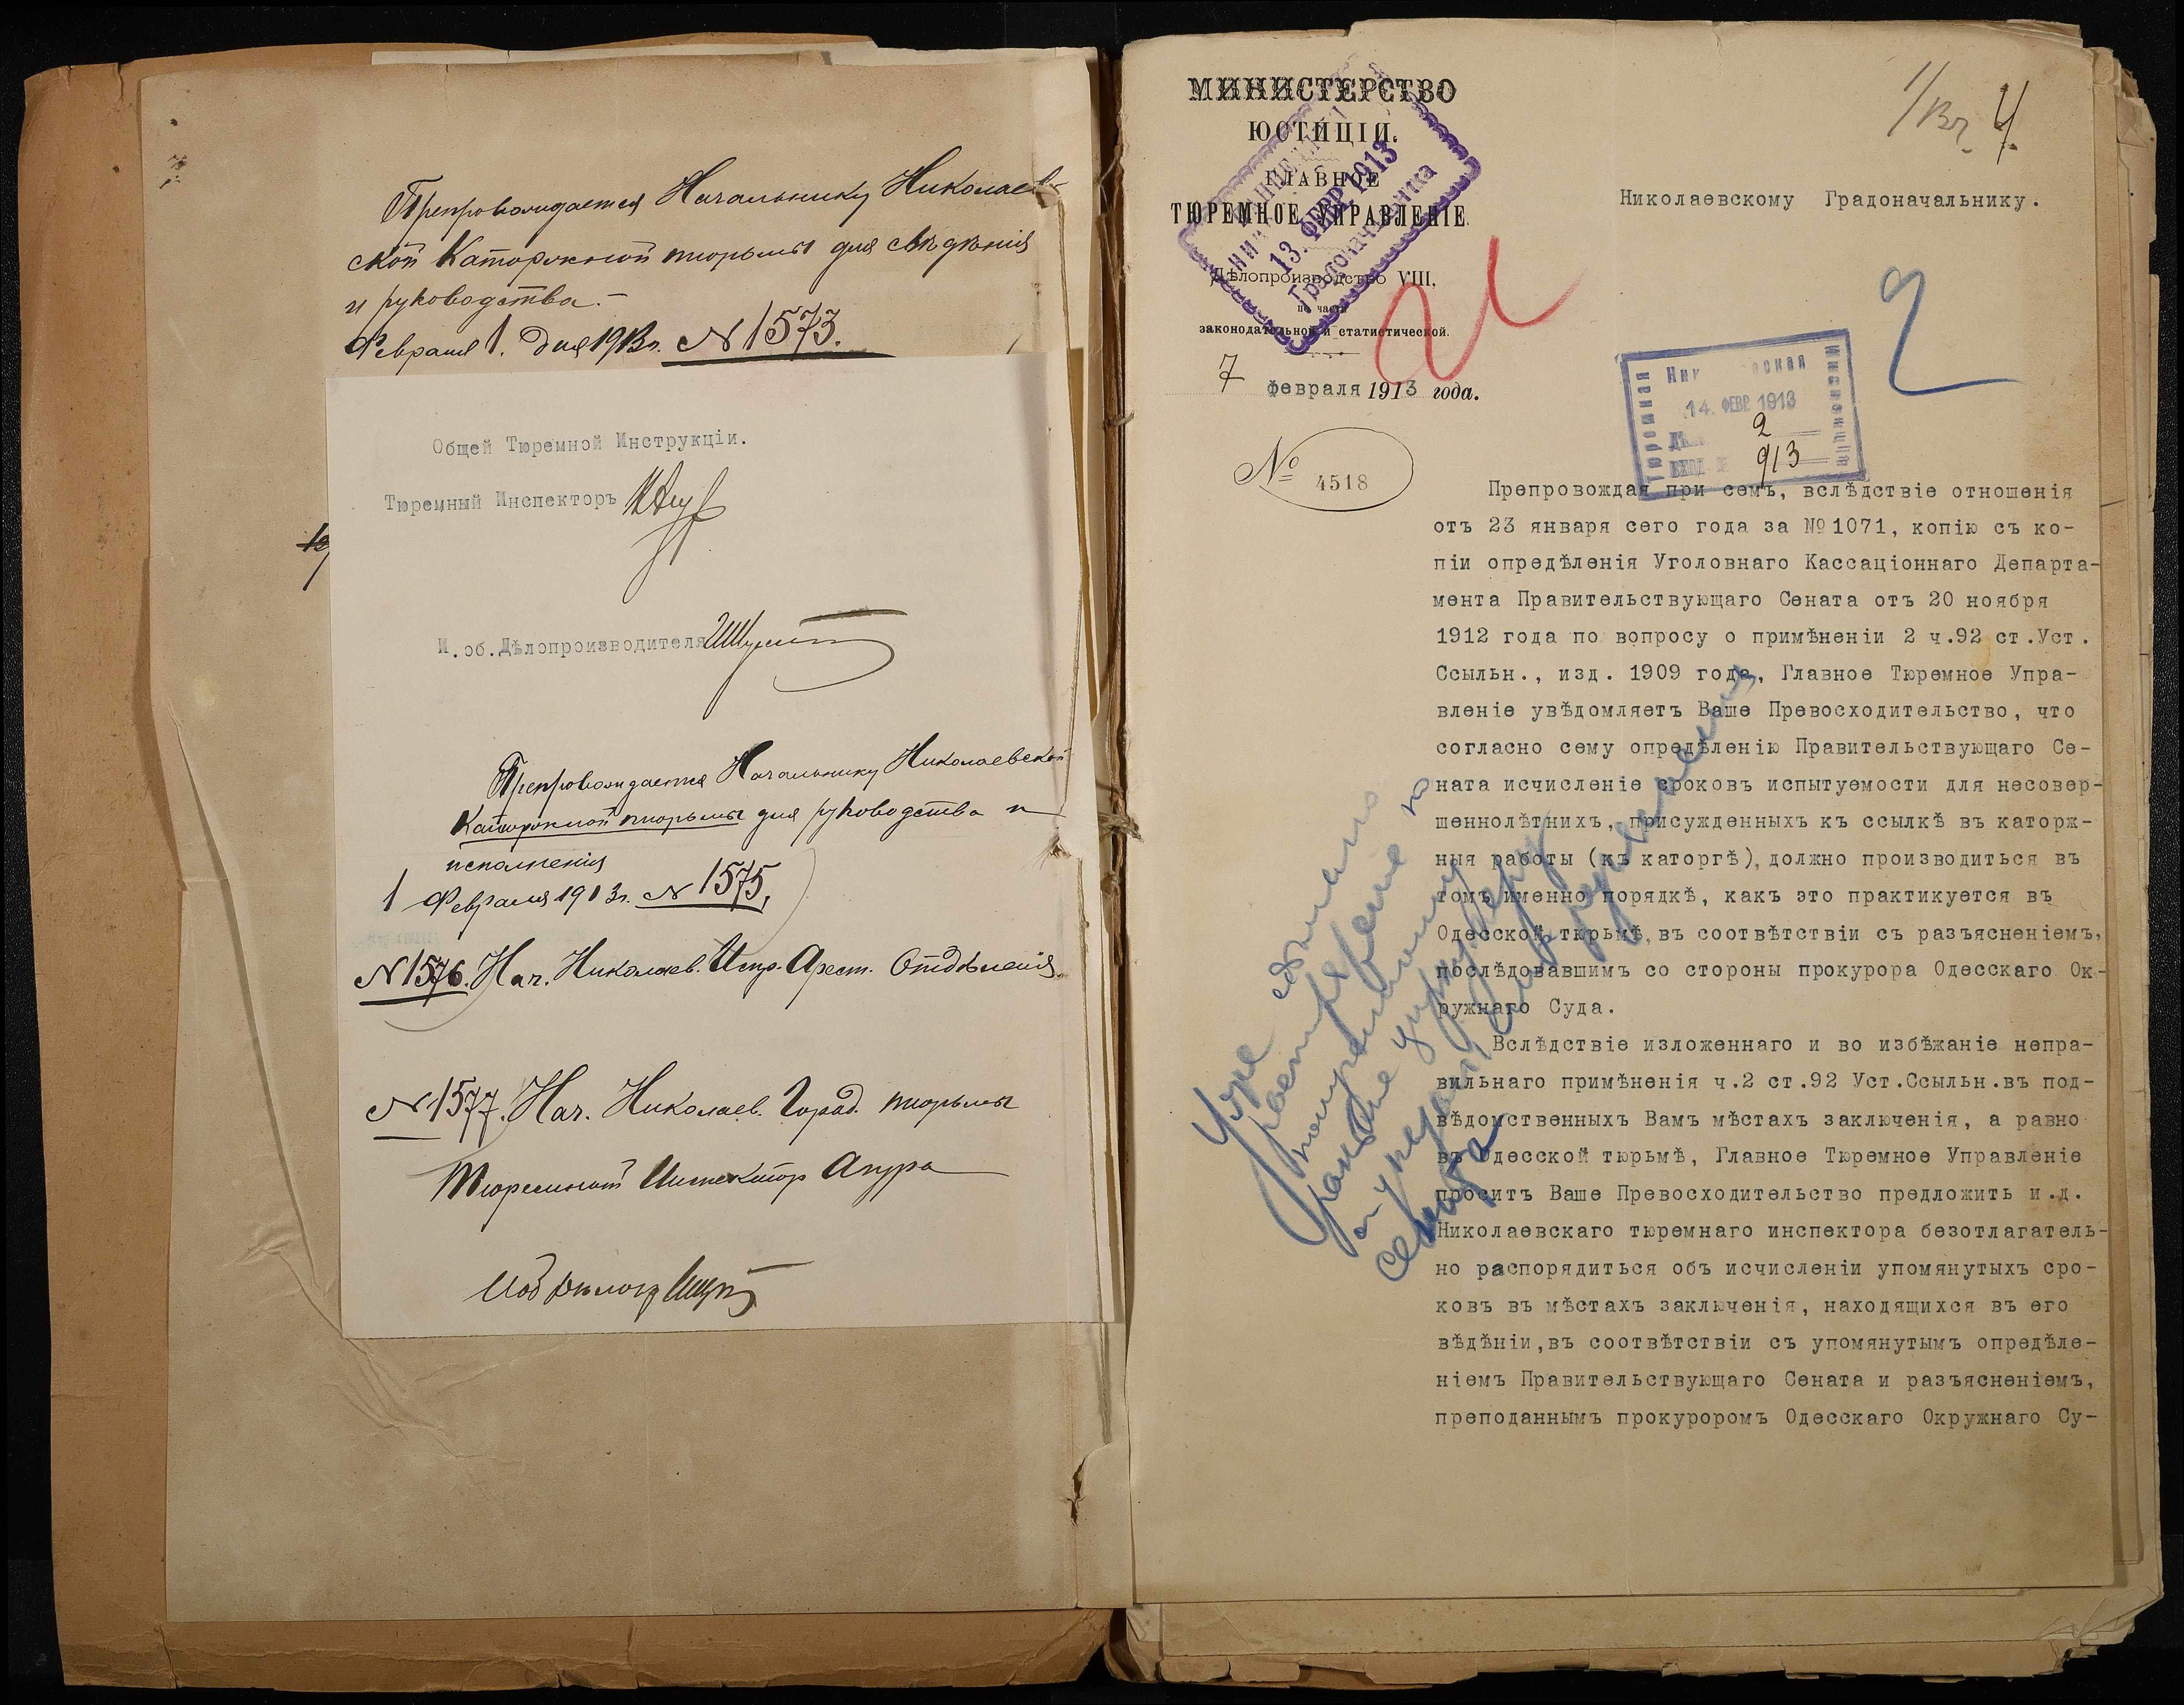 Препровождается Начальнику Николаев-
ской Каторжной тюрьмы для свѣдѣнія
и руководства.-
Февраля 1. дня 1913г. N 1573.
Общей Тюремной Инструкціи.
Тюремный Инспекторъ
И.об.Дѣлопроизводителя
Препровождается Начальнику Николаевской
Каторжной тюрьмы для руководства и
исполненія
1 Февраля 1913г. N 1575.
N 1576. Нач. Николаев. Испр. Арест. Отдѣленія.
N 1577. Нач. Николаев. Город. тюрьмы
Тюремный Инспектор
МИНИСТЕРСТВО
ЮСТИЦІИ.
ГЛАВНОЕ
ТЮРЕМНОЕ УПРАВЛЕНІЕ.
Дѣлопроизводство VIII,
по части
законодательной и статистической.
7 февраля 1913 года.
№ 4518
13. ФЕВР 1913
Градоначальника
4
Николаевскому Градоначальнику.
2
Тюремная
Инспекція
14. ФЕВР 1913
2
913
Препровождая при семъ, вслѣдствіе отношенія
отъ 23 января сего года за №1071, копію съ ко-
піи опредѣленія Уголовнаго Кассаціоннаго Департа-
мента Правительствующаго Сената отъ 20 ноября
1912 года по вопросу о примѣненіи 2 ч.92 ст.Уст.
Ссыльн., изд. 1909 года, Главное Тюремное Упра-
вленіе увѣдомляетъ Ваше Превосходительство, что
согласно сему опредѣленію Правительствующаго Се-
ната исчисленіе сроковъ испытуемости для несовер-
шеннолѣтнихъ, присужденныхъ къ ссылкѣ въ каторж-
ныя работы (къ каторгѣ), должно производиться въ
томъ именно порядкѣ, какъ это практикуется въ
Одесской тюрьмѣ, въ соотвѣтствіи съ разъясненіемъ,
послѣдовавшимъ со стороны прокурора Одесскаго Ок-
ружнаго Суда.
Вслѣдствіе изложеннаго и во избѣжаніе непра-
вильнаго примѣненія ч.2 ст.92 Уст.Ссыльн.въ под-
вѣдомственныхъ Вамъ мѣстахъ заключенія, а равно
въ Одесской тюрьмѣ, Главное Тюремное Управленіе
проситъ Ваше Превосходительство предложить и.д.
Николаевскаго тюремнаго инспектора безотлагатель-
но распорядиться объ исчисленіи упомянутыхъ сро-
ковъ въ мѣстахъ заключенія, находящихся въ его
вѣдѣніи, въ соотвѣтствіи съ упомянутымъ опредѣле-
ніемъ Правительствующаго Сената и разъясненіемъ,
преподаннымъ прокуроромъ Одесскаго Окружнаго Су-
Уже сдѣлано
Сената